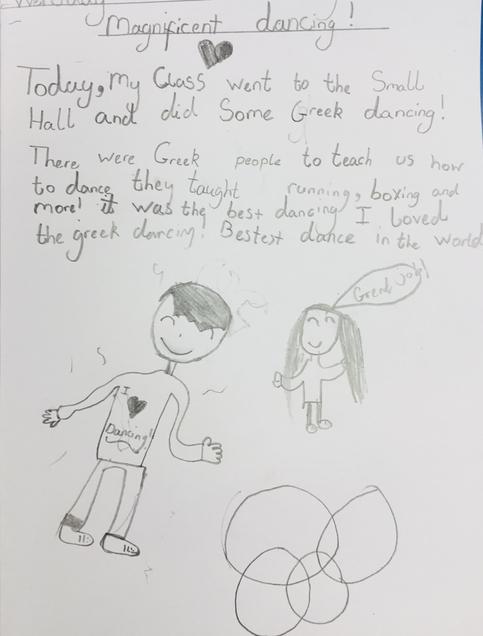 Magnificent dancing!
Today, my Class went to the Small
Hall and did Some Greek dancing!
There were Greek people to teach us how
to dance, they taught running, boxing and
more! it was the best dancing I loved
the greek dancing! Bestest dance in the world
Great job!
I
Dancing!